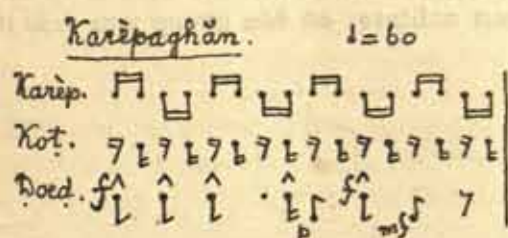 Karèpaghăn. ♩=60
Karèp.
Koṭ.
Ḍoeḍ. f p f mf